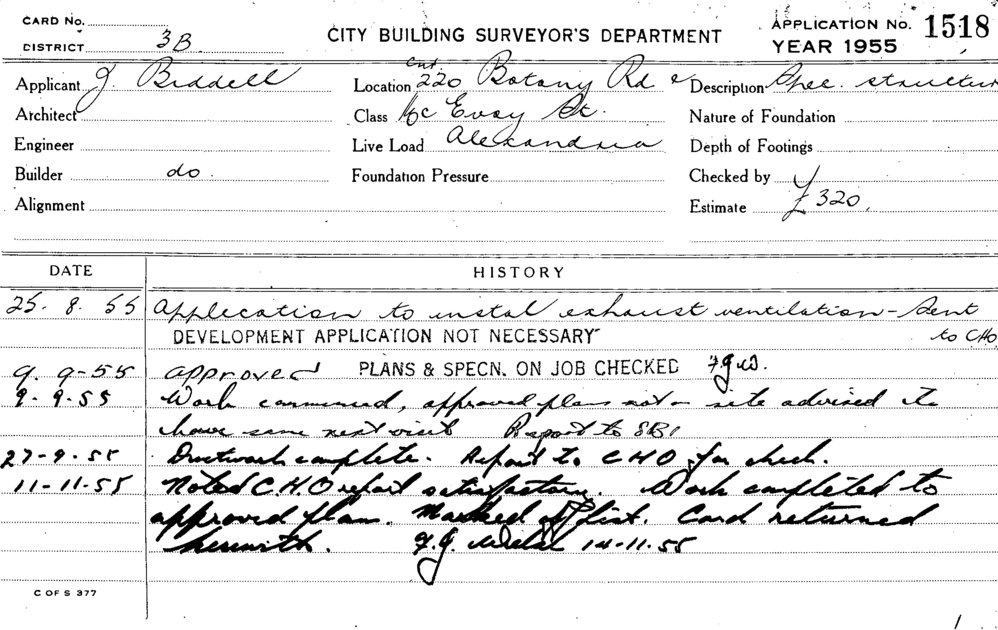 CARD No.
DISTRICT 3B
CITY BUILDING SURVEYOR'S DEPARTMENT
APPLICATION No. 1518
YEAR 1955
Applicant J. Biddell
Location Cnr. 220 Botany Rd &
Description Spec. structur
Architect
Class Mc Evoy St.
Nature of Foundation
Engineer
Live Load Alexandria
Depth of Footings
Builder do.
Foundation Pressure
Checked by
Alignment
Estimate £320.
DATE HISTORY
25. 8. 55 Application to instal exhaust ventilation - Sent
DEVELOPMENT APPLICATION NOT NECESSARY to CHO
9. 9-55 approved PLANS & SPECN. ON JOB CHECKED F.J.W.
9-9-55 Work commenced, approved plans not on site advised to
have same next visit Report to SBI
27-9-55 Ductwork complete. Report to CHO for check.
11-11-55 Noted C.H.O report satisfactory. Work completed to
approved plan. Marked off list. Card returned
herewith. F.J. 14-11-55
C OF S 377
1